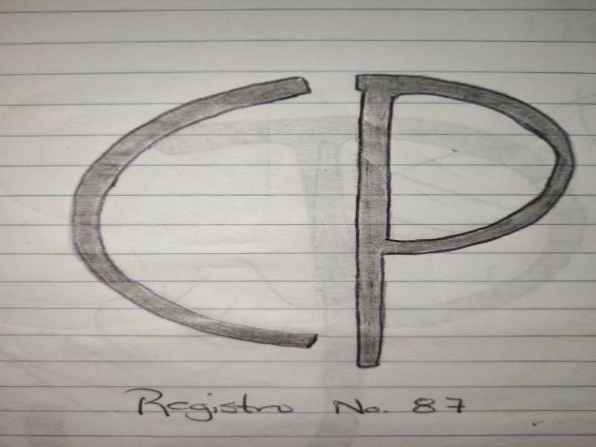 CP
Registro No. 87